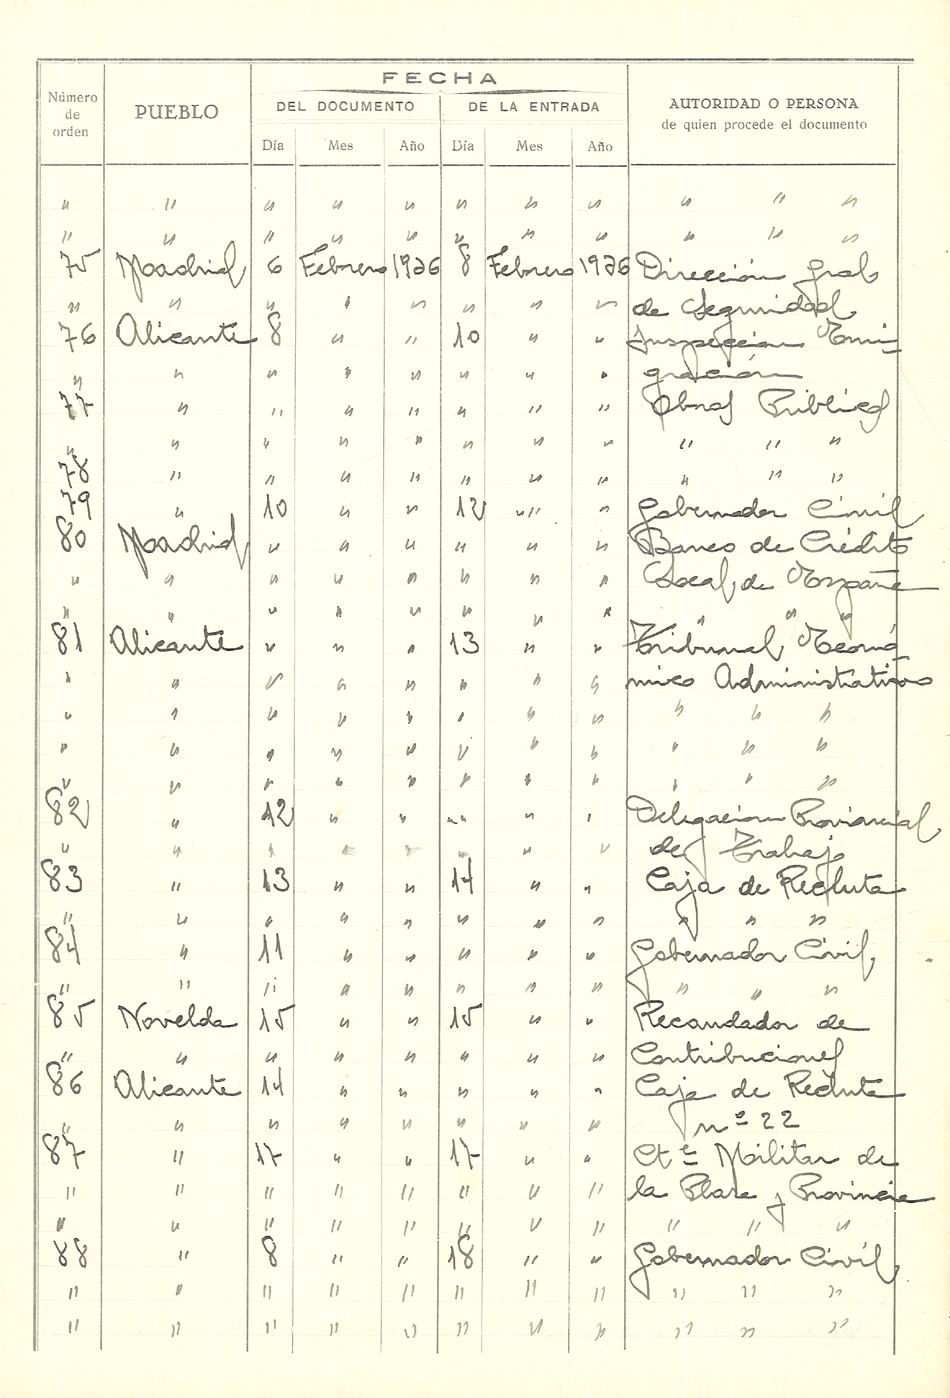 FECHA
Número de orden PUEBLO DEL DOCUMENTO DE LA ENTRADA AUTORIDAD O PERSONA de quien procede el documento
Día Mes Año Día Mes Año
" " " " " " " " " " "
" " " " " " " " " " "
75 Madrid 6 Febrero 1936 8 Febrero 1936 Dirección Gral
" " " " " " " " de Seguridad
76 Alicante 8 " " 10 " " Inspección Emi-
" " " " " " " " gración
77 " " " " " " " Obras Públicas
" " " " " " " " " " "
78 " " " " " " " " " "
79 " 10 " " 12 " " Gobernador Civil
80 Madrid " " " " " " Banco de Crédito
" " " " " " " " Local de España
" " " " " " " " " " "
81 Alicante " " " 13 " " Tribunal Econó-
" " " " " " " " mico Administrativo
" " " " " " " " " " "
" " " " " " " " " " "
" " " " " " " " " " "
82 " 12 " " " " " Delegación Provincial
" " " " " " " " de Trabajo
83 " 13 " " 14 " " Caja de Recluta
" " " " " " " " " " "
84 " 11 " " " " " Gobernador Civil,
" " " " " " " " " " "
85 Novelda 15 " " 15 " " Recaudador de
" " " " " " " " Contribuciones
86 Alicante 14 " " " " " Caja de Recluta
" " " " " " " " nº 22
87 " 17 " " 17 " " Cte Militar de
" " " " " " " " la Plaza y Provincia
" " " " " " " " " " "
88 " 8 " " 18 " " Gobernador Civil,
" " " " " " " " " " "
" " " " " " " " " " "